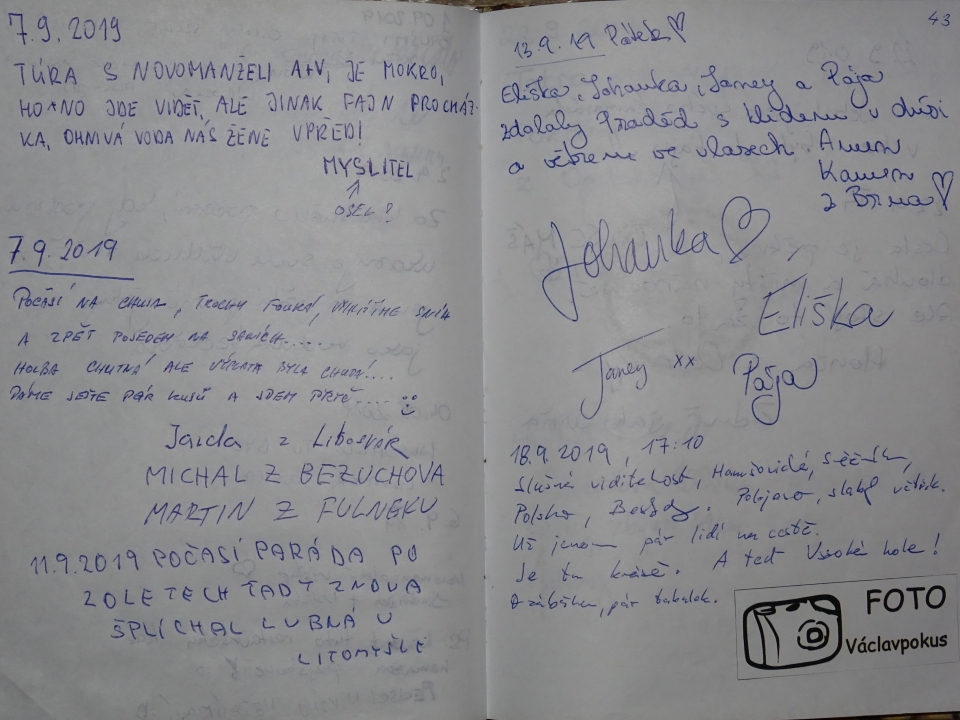 7.9.2019
TÚRA S NOVOMANŽELI A+V, JE MOKRO,
HOVNO JDE VIDĚT, ALE JINAK FAJN PROCHÁZ-
KA, OHNIVÁ VODA NÁS ŽENE VPŘED!
MYSLITEL
OSEL?
7.9.2019
POČASÍ NA CHUJA, TROCHU FOUKÁ, SNÍH
A ZPĚT POJEDEM NA SANÍCH.....
HOLBA CHUTNÁ ALE BYLA CHUDÁ....
DÁME JEŠTĚ PÁR KUSŮ A JDEM PRYČ....
Jarda z
MICHAL Z BEZUCHOVA
MARTIN Z FULNEKU
11.9.2019 POČASÍ PARÁDA PO
20 LETECH TADY ZNOVA
ŠPLÍCHAL LUBNÁ U
LITOMYŠLE
43
13.9.19 Pátek
Eliška, Johanka, Janey a Pája
zdolaly Praděd s klidem v duši
a větrem ve vlasech. Amen
Kamen
z Brna
Johanka
Eliška
Janey xx
Pája
18.9.2019, 17:10
Slušná viditelnost, Hanušovická, Sněžník,
Polsko, Beskydy. Polojasno, slabý větřík.
Už jenom pár lidí na cestě.
Je tu krásně. A teď Vysoké hole!
pár
FOTO
Václavpokus